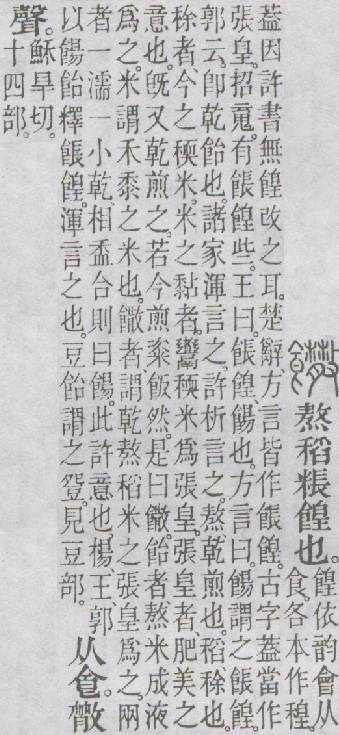 饊 熬稻粻餭也。餭依韵會从
食。各本作䅣。
葢因許書無餭改之耳。楚辭、方言皆作餦餭。古字葢當作
張皇。招䰟。有餦餭些。王曰。餦餭、餳也。方言曰。餳謂之餦餭。
郭云。卽乾飴也。諸家渾言之。許析言之。熬、乾煎也。稻、稌也。
稌者、今之稬米。米之黏者。鬻稬米爲張皇。張皇者、肥美之
意也。旣又乾煎之。若今煎粢飯然。是曰饊。飴者、熬米成液
爲之。米謂禾黍之米也。饊者、謂乾熬稻米之張皇爲之。兩
者一濡一小乾。相盉合則曰餳。此許意也。楊、王、郭
以餳飴釋餦餭。渾言之也。豆飴謂之𧯡。見豆部。
从𠊊。㪔
聲。穌旱切。
十四部。